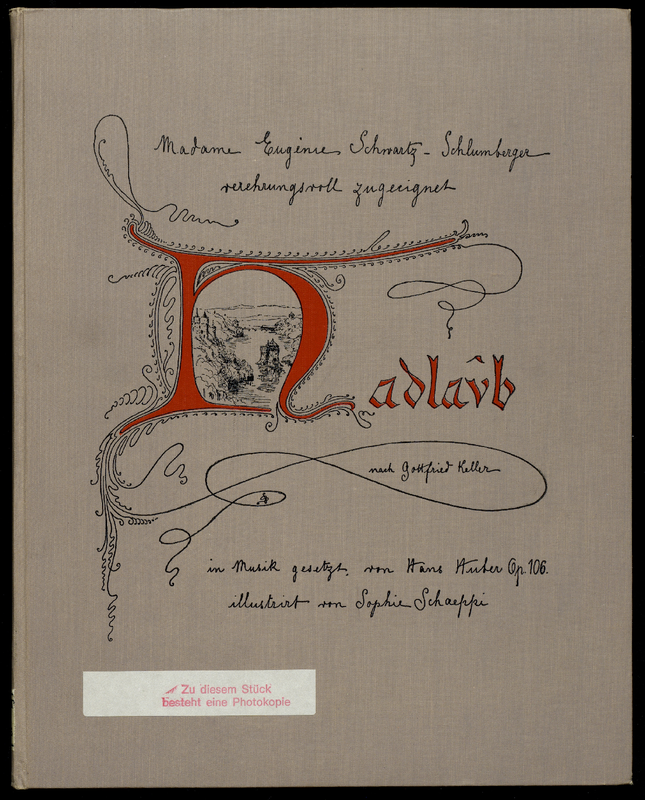 Madame Eugénie Schwartz - Schlumberger
verehrungsvoll zugeeignet
Hadlaŷb
nach Gottfried Keller
in Musik gesetzt von Hans Huber Op. 106.
illustrirt von Sophie Schaeppi
Zu diesem Stück
besteht eine Photokopie